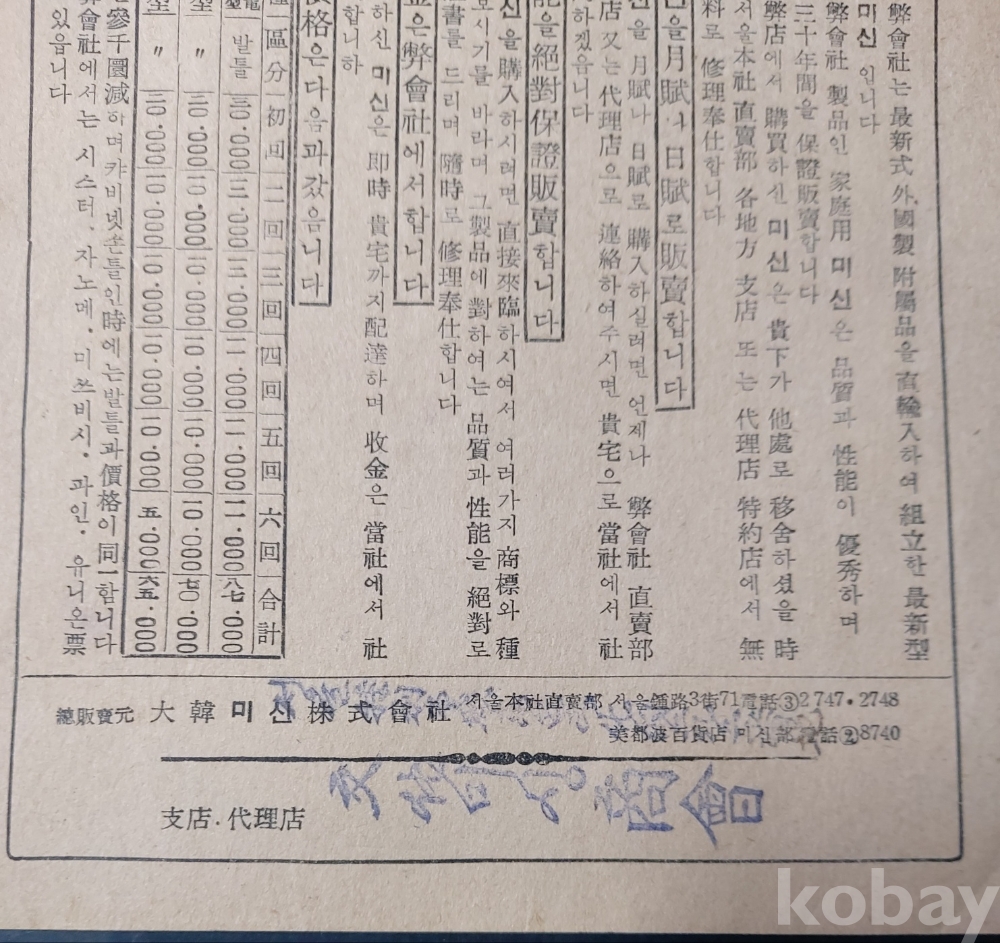 弊會社는 最新式 外國製 附屬品을 直輸入하여 組立한 最新型
미신 입니다
弊會社 製品인 家庭用 미신은 品質과 性能이 優秀하며
三十年間을 保證販賣합니다
弊店에서 購買하신 미신은 貴下가 他處로 移舍하셨을 時
서울本社 直賣部 各地方 支店 또는 代理店 特約店에서 無
料로 修理奉仕합니다
月賦나 日賦로 販賣합니다
을 月賦나 日賦로 購入하실려면 언제나 弊會社 直賣部
店 又는 代理店으로 連絡하여주시면 貴宅으로 當社에서 社
하겠읍니다
을 絕對保證販賣합니다
신을 購入하시려면 直接來臨하시여서 여러가지 商標와 種
보시기를 바라며 그製品에 對하여는 品質과 性能을 絕對로
書를 드리며 隨時로 修理奉仕합니다
은 弊會社에서 합니다
하신 미신은 即時 貴宅까지配達하며 收金은 當社에서 社
합니다
價格은 다음과 갔음니다
區分 初回 二回 三回 四回 五回 六回 合計
발틀 三〇.〇〇〇 一三.〇〇〇 一二.〇〇〇 一一.〇〇〇 一一.〇〇〇 八七.〇〇〇
型 〃 二〇.〇〇〇 一〇.〇〇〇 一〇.〇〇〇 一〇.〇〇〇 一〇.〇〇〇 一〇.〇〇〇 七〇.〇〇〇
型 〃 二〇.〇〇〇 一〇.〇〇〇 一〇.〇〇〇 一〇.〇〇〇 一〇.〇〇〇 五.〇〇〇 六五.〇〇〇
參千圜減하며 캬비넷손틀인時에는발틀과價格이同一합니다
會社에서는 시스터. 자노메. 미쓰비시. 파인. 유니온票
있읍니다
總販賣元 大韓미신株式會社 서울本社直賣部 서울鍾路3街71電話③2747·2748
美都波百貨店 미신部 電話②8740
支店.代理店
kobay